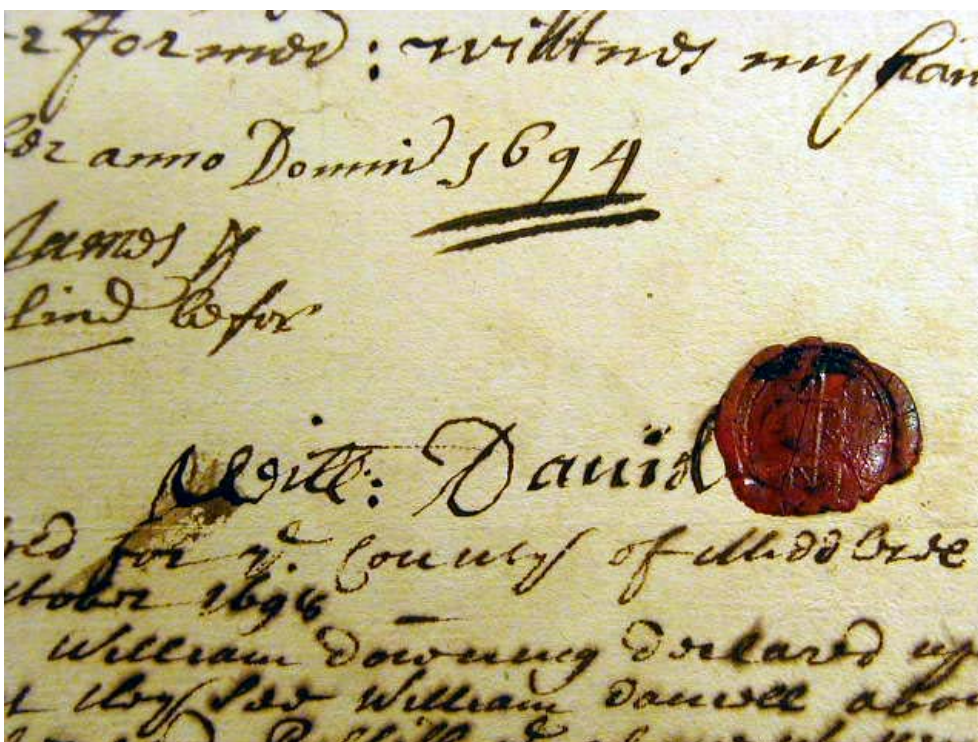 formed: wittnes my han
ber anno Domin 1694
James
lind befor
Will: Dauid
for ye County of Midd
tober 169
William downing declared up
they see William dauell abo